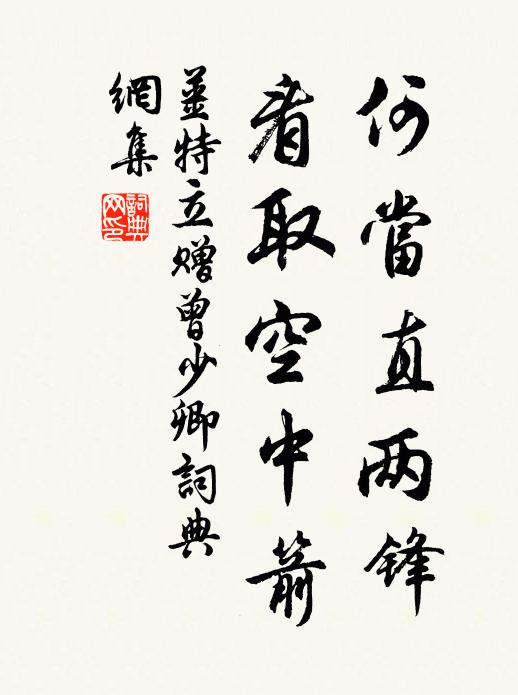 何當直两锋
看取空中箭
姜特立赠曾少卿詞典
網集
詞典
网印